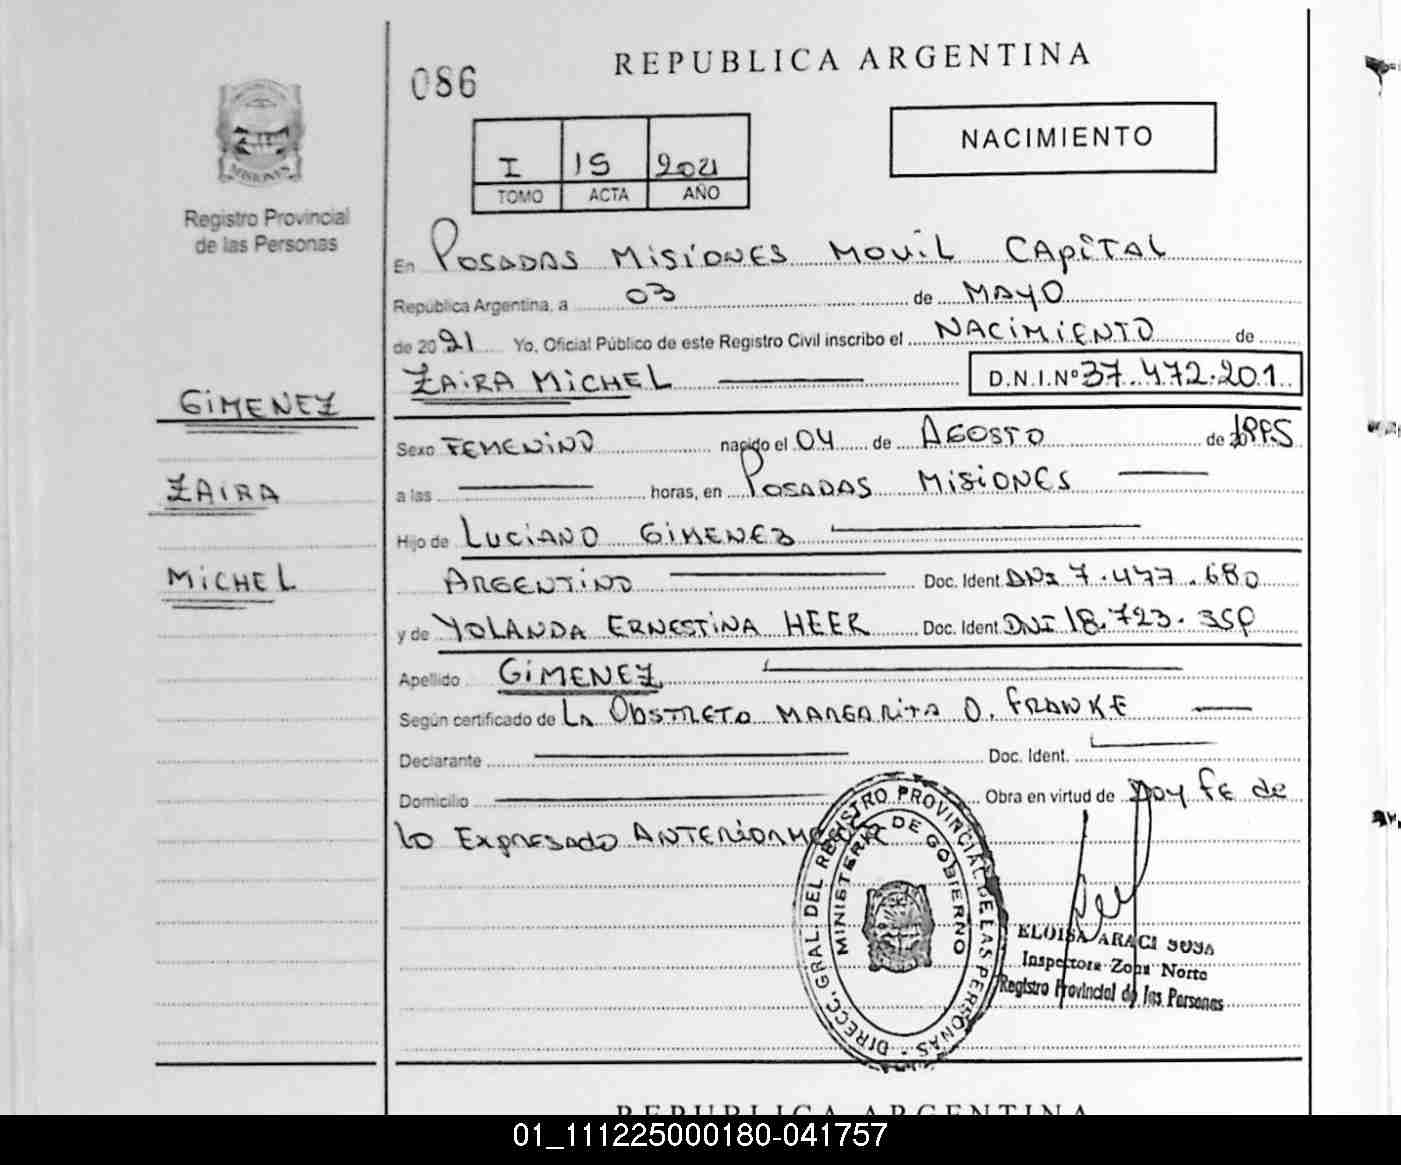 086
REPUBLICA ARGENTINA
NACIMIENTO
I 15 2021
TOMO ACTA AÑO
MISIONES
Registro Provincial
de las Personas
En POSADAS MISIONES MOVIL CAPITAL
República Argentina, a 03 de MAYO
de 2021 Yo, Oficial Público de este Registro Civil inscribo el NACIMIENTO de
ZAIRA MICHEL D.N.I.Nº 37.472.201
GIMENEZ
ZAIRA
MICHEL
Sexo FEMENINO nacido el 04 de AGOSTO de
a las horas, en POSADAS MISIONES
Hijo de LUCIANO GIMENEZ
ARGENTINO Doc. Ident. DNI 7.477.680
y de YOLANDA ERNESTINA HEER Doc. Ident. DNI 18.723.
Apellido GIMENEZ
Según certificado de LA OBSTRETA MARGARITA O. FRANKE
Declarante Doc. Ident.
Domicilio Obra en virtud de Doy FE de
lo Expresado ANTERIORMENTE
DIRECC. GRAL. DEL REGISTRO PROVINCIAL DE LAS PERSONAS
MINISTERIO DE GOBIERNO
ELOISA ARACI SOSA
Inspectora Zona Norte
Registro Provincial de las Personas
REPUBLICA ARGENTINA
01_111225000180-041757